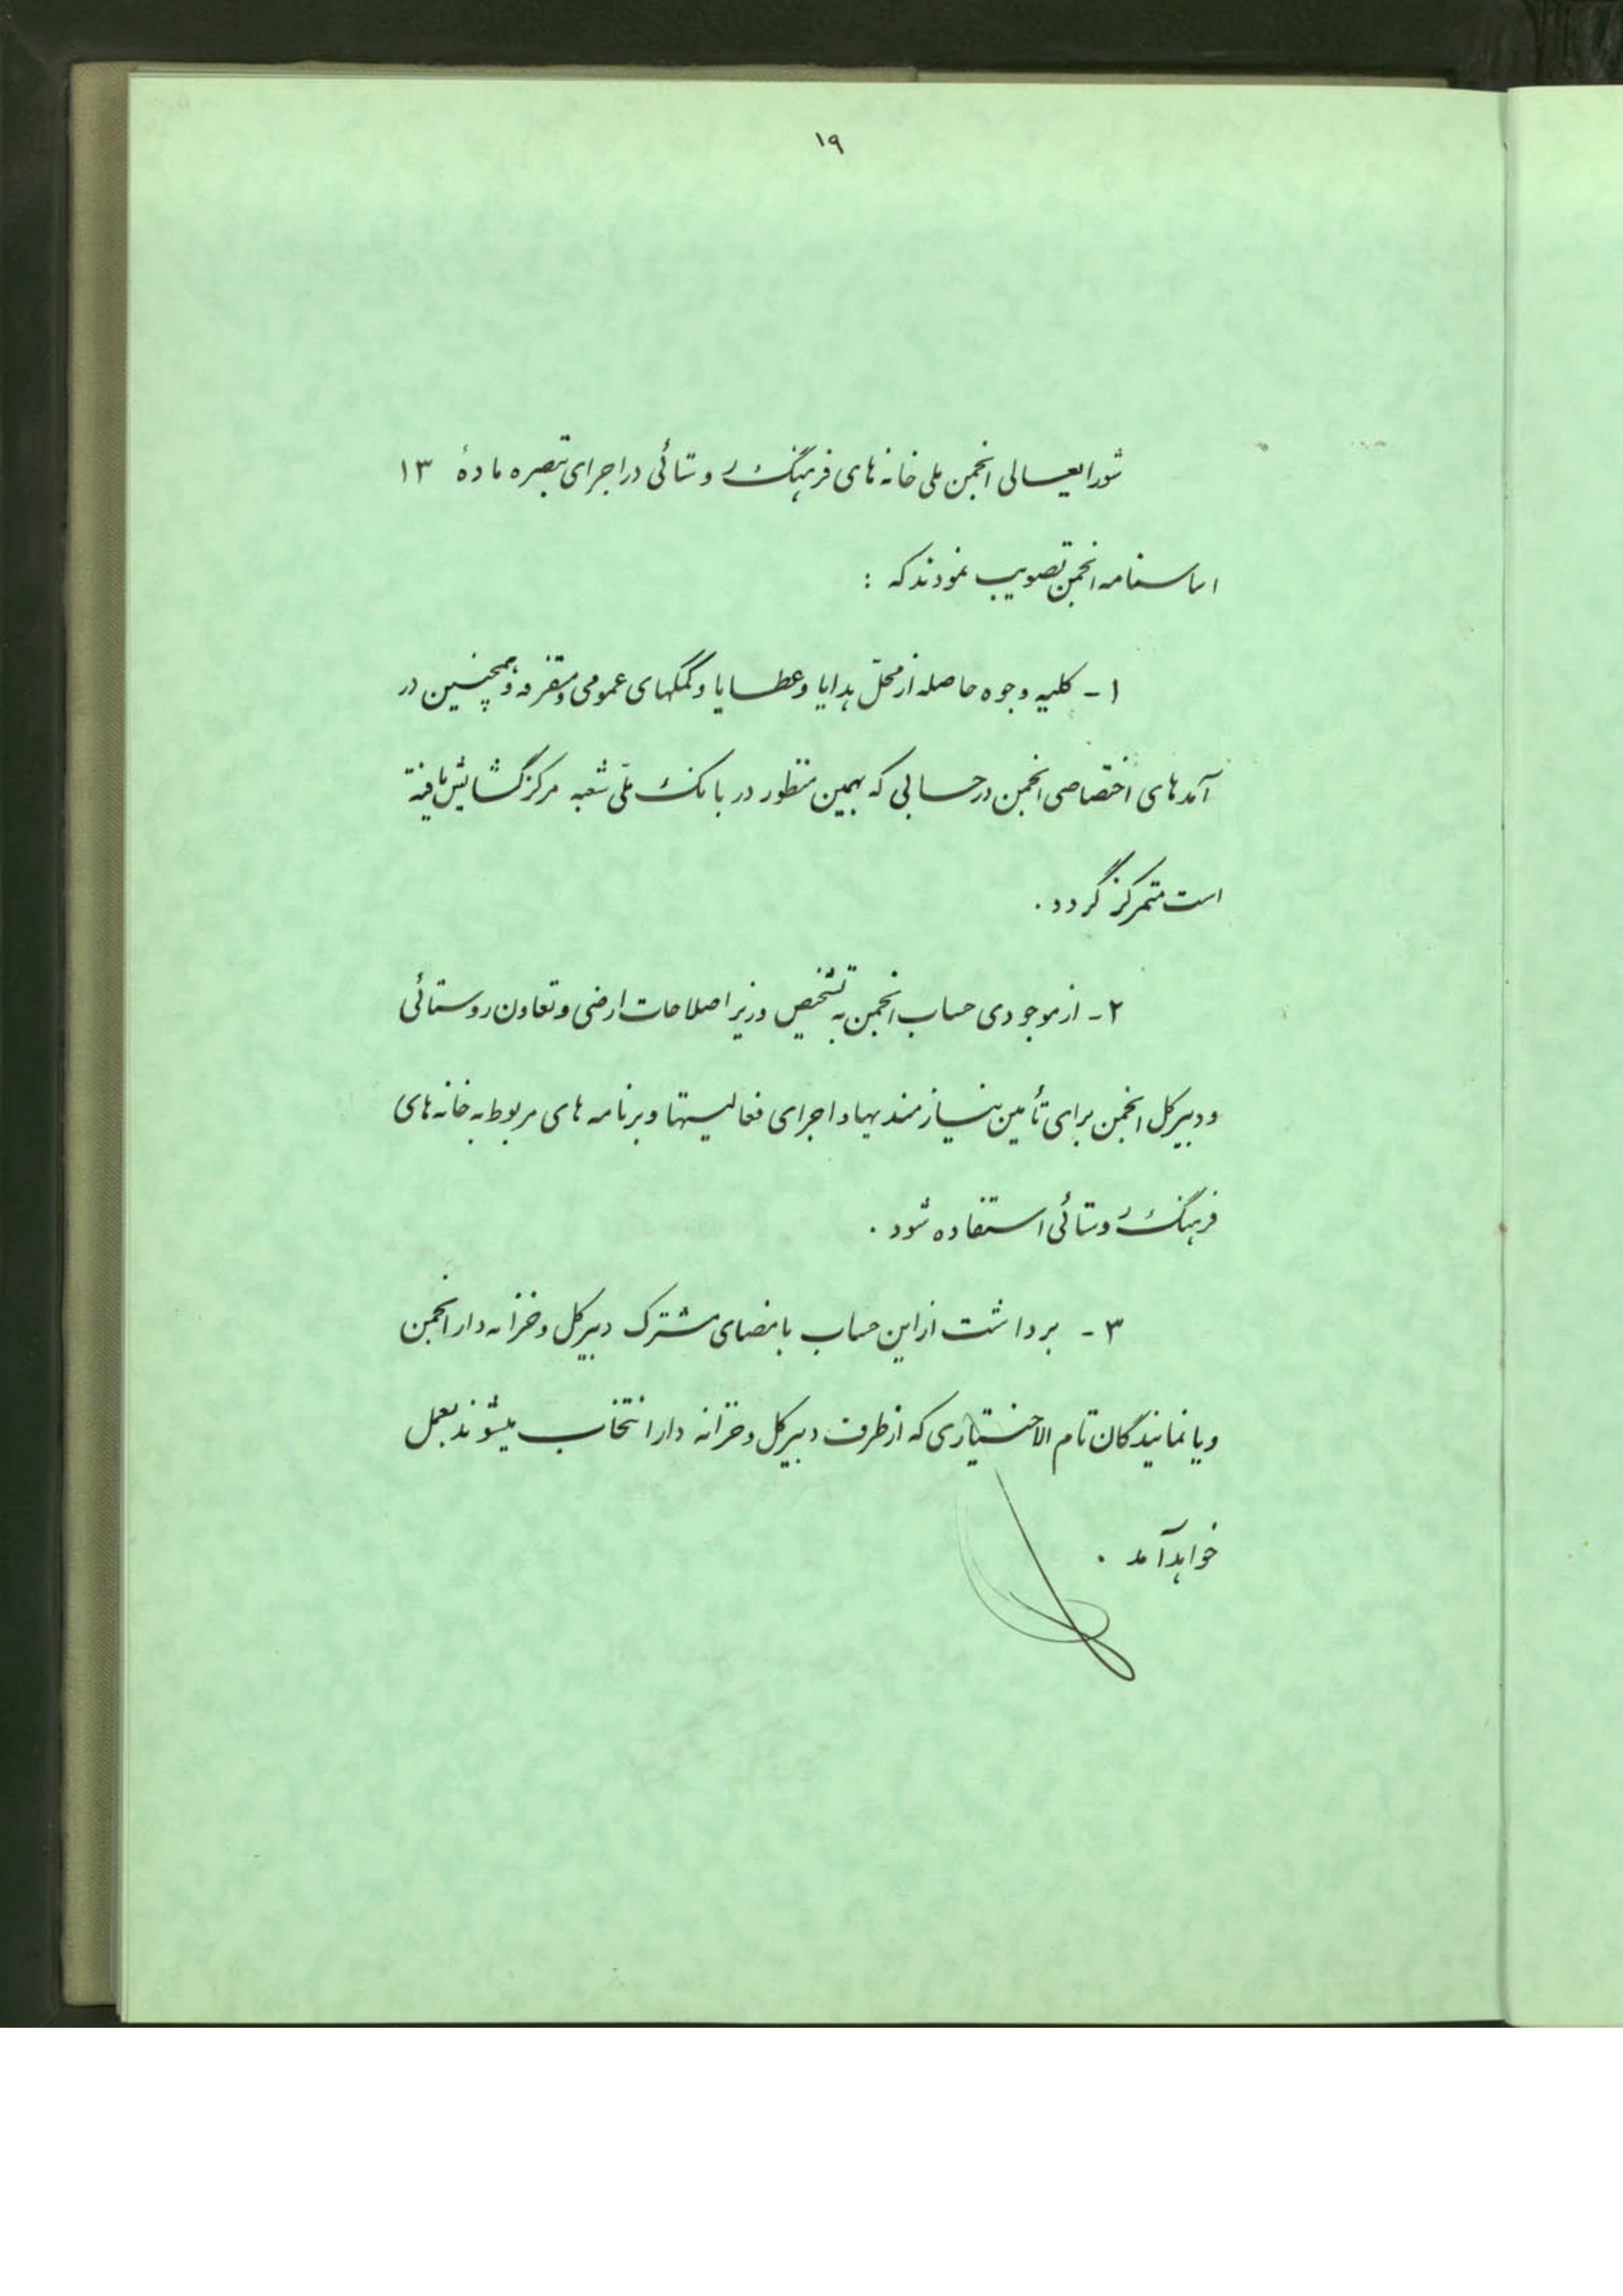 ۱۹
شورایعالی انجمن ملی خانه های فرهنگ روستائی در اجرای تبصره مادهٔ ۱۳
اساسنامه انجمن تصویب نمودند که :
۱ - کلیه وجوه حاصله از محلّ هدایا و عطایا و کمکهای عمومی و متفرقه و همچنین در
آمدهای اختصاصی انجمن در حسابی که بهمین منظور در بانک ملّی شعبه مرکز گشایش یافته
است متمرکز گردد .
۲ - از موجودی حساب انجمن به تشخیص وزیر اصلاحات ارضی و تعاون روستائی
و دبیر کل انجمن برای تأمین نیازمندیها و اجرای فعالیتها و برنامه های مربوط به خانه های
فرهنگ روستائی استفاده شود .
۳ - برداشت از این حساب بامضای مشترک دبیر کل و خزانه دار انجمن
و یا نمایندگان تام الاختیاری که از طرف دبیر کل و خزانه دار انتخاب میشوند بعمل
خواهد آمد .